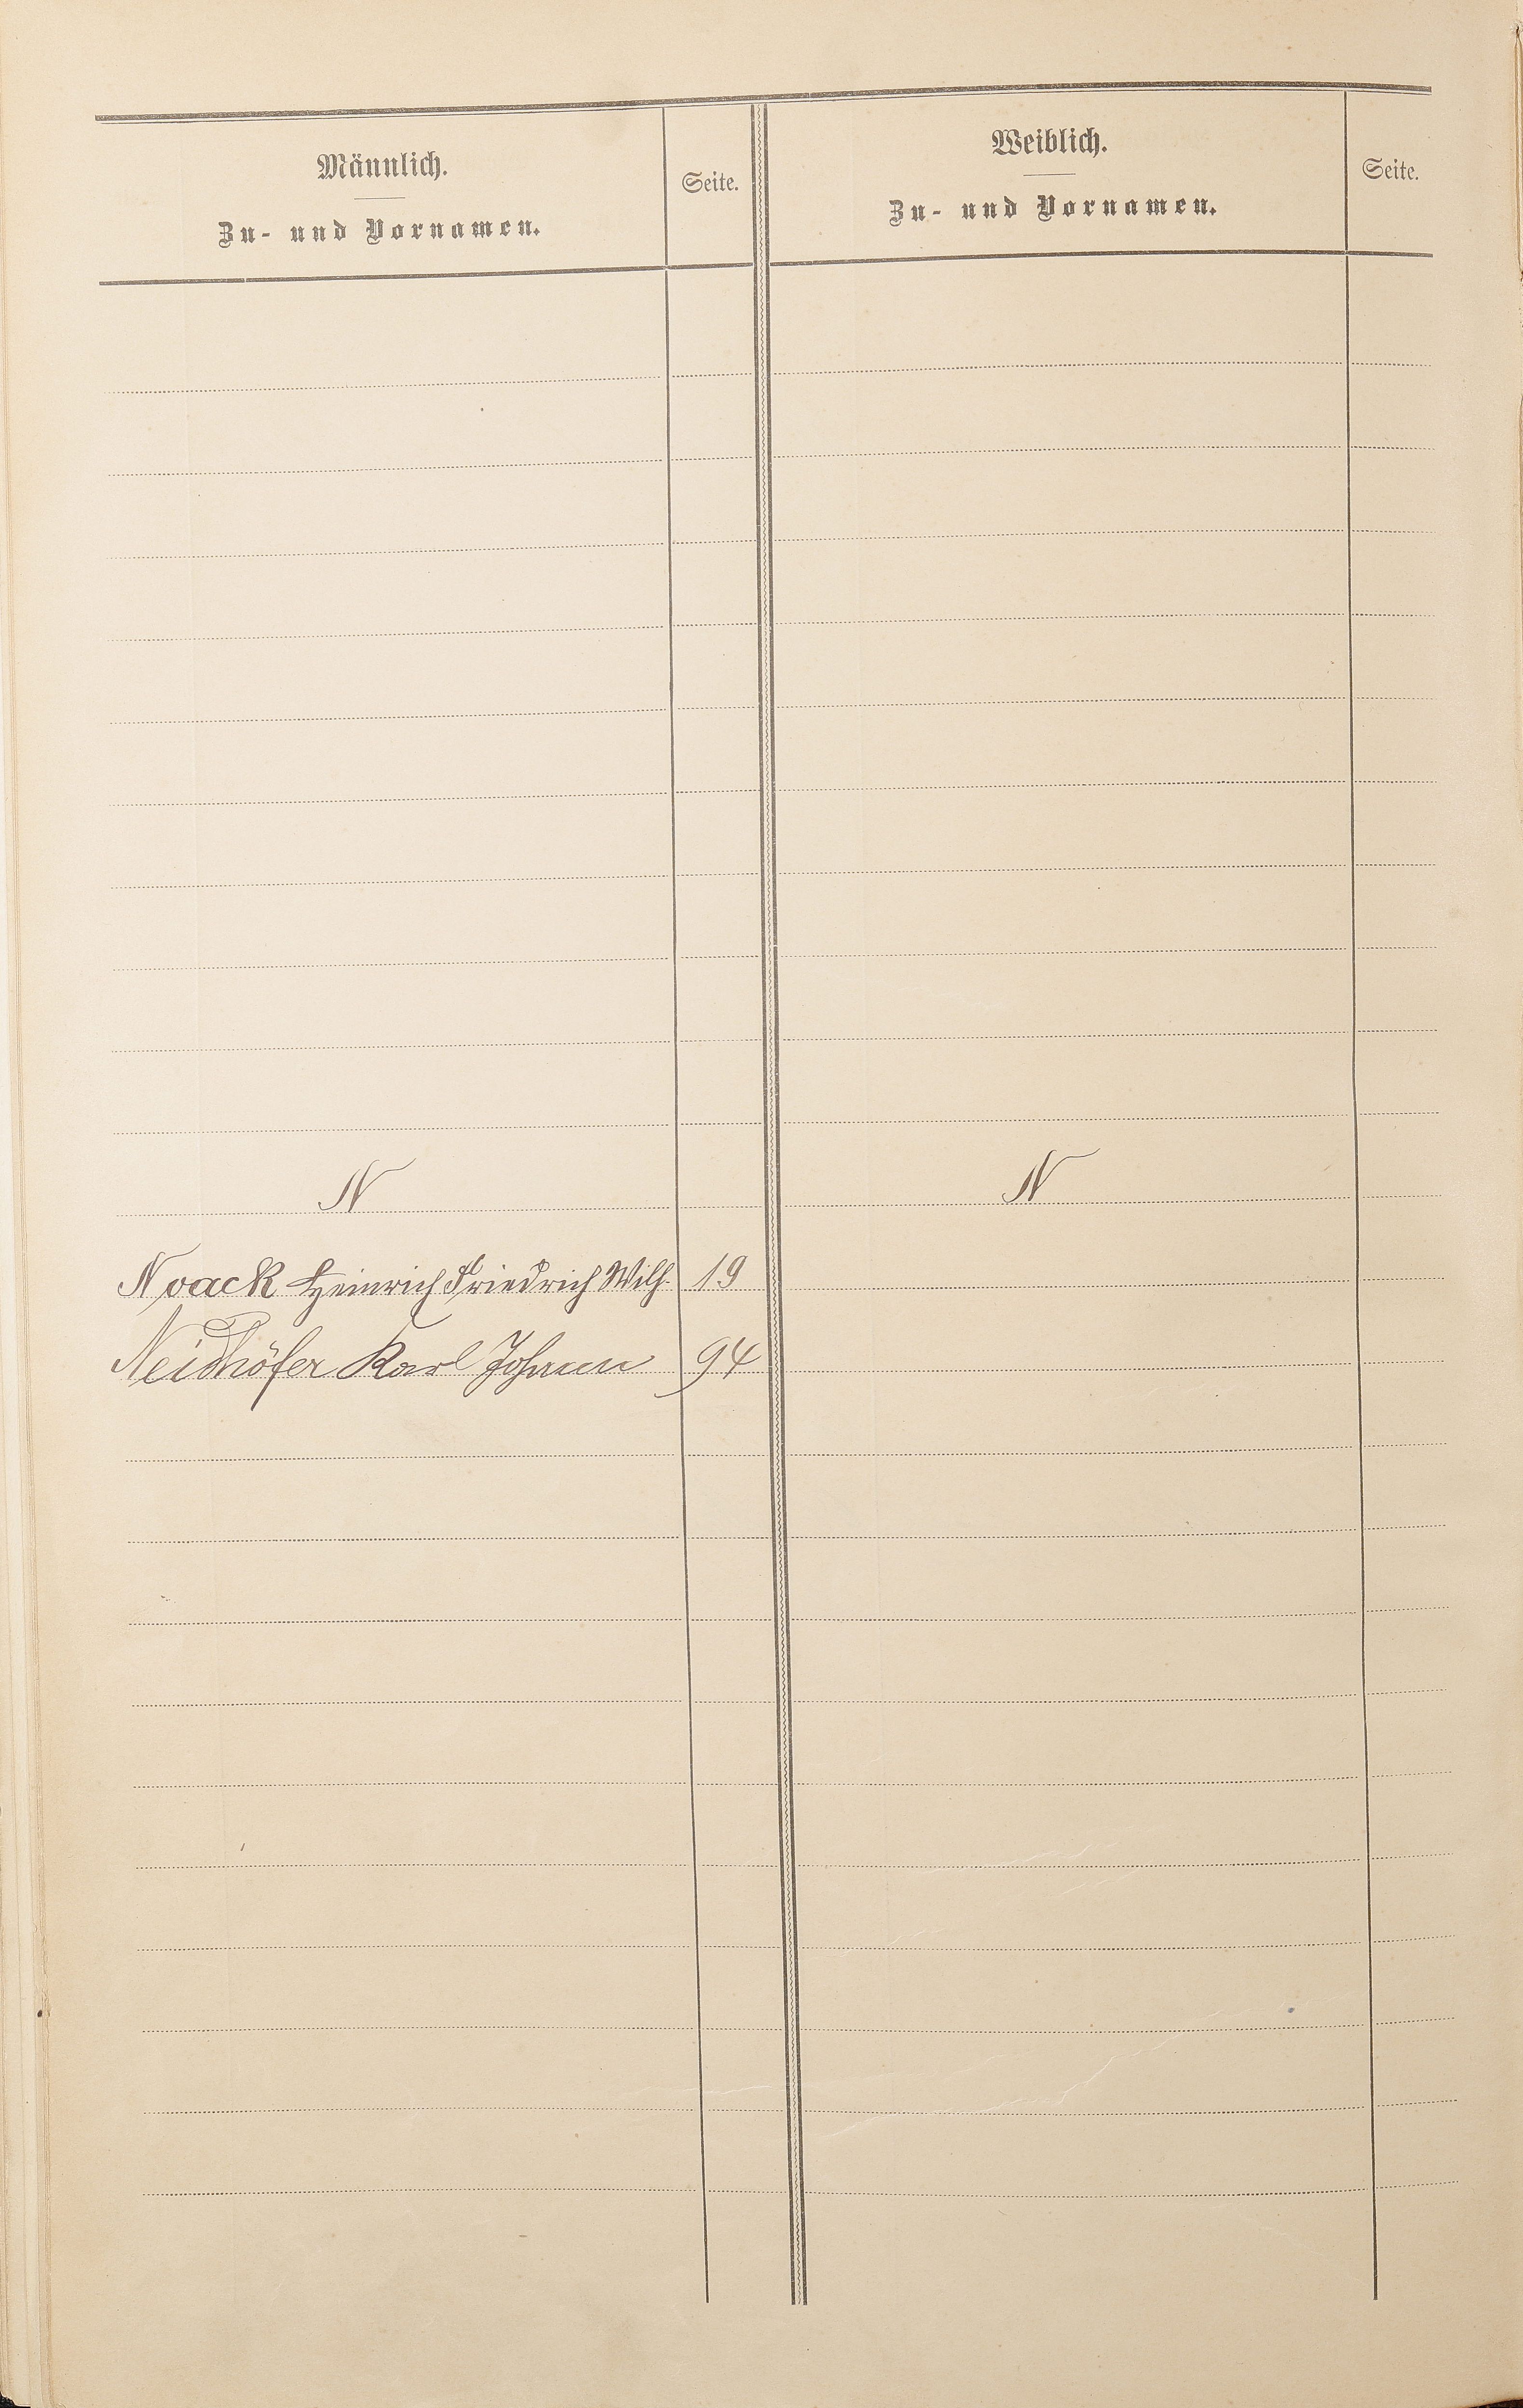 Männlich.
Zu- und Vornamen.
Seite.
Weiblich.
Zu- und Vornamen.
Seite.
N
N
Noack Heinrich Friedrich Wilh. 19
Neidhöfer Karl Johann 94